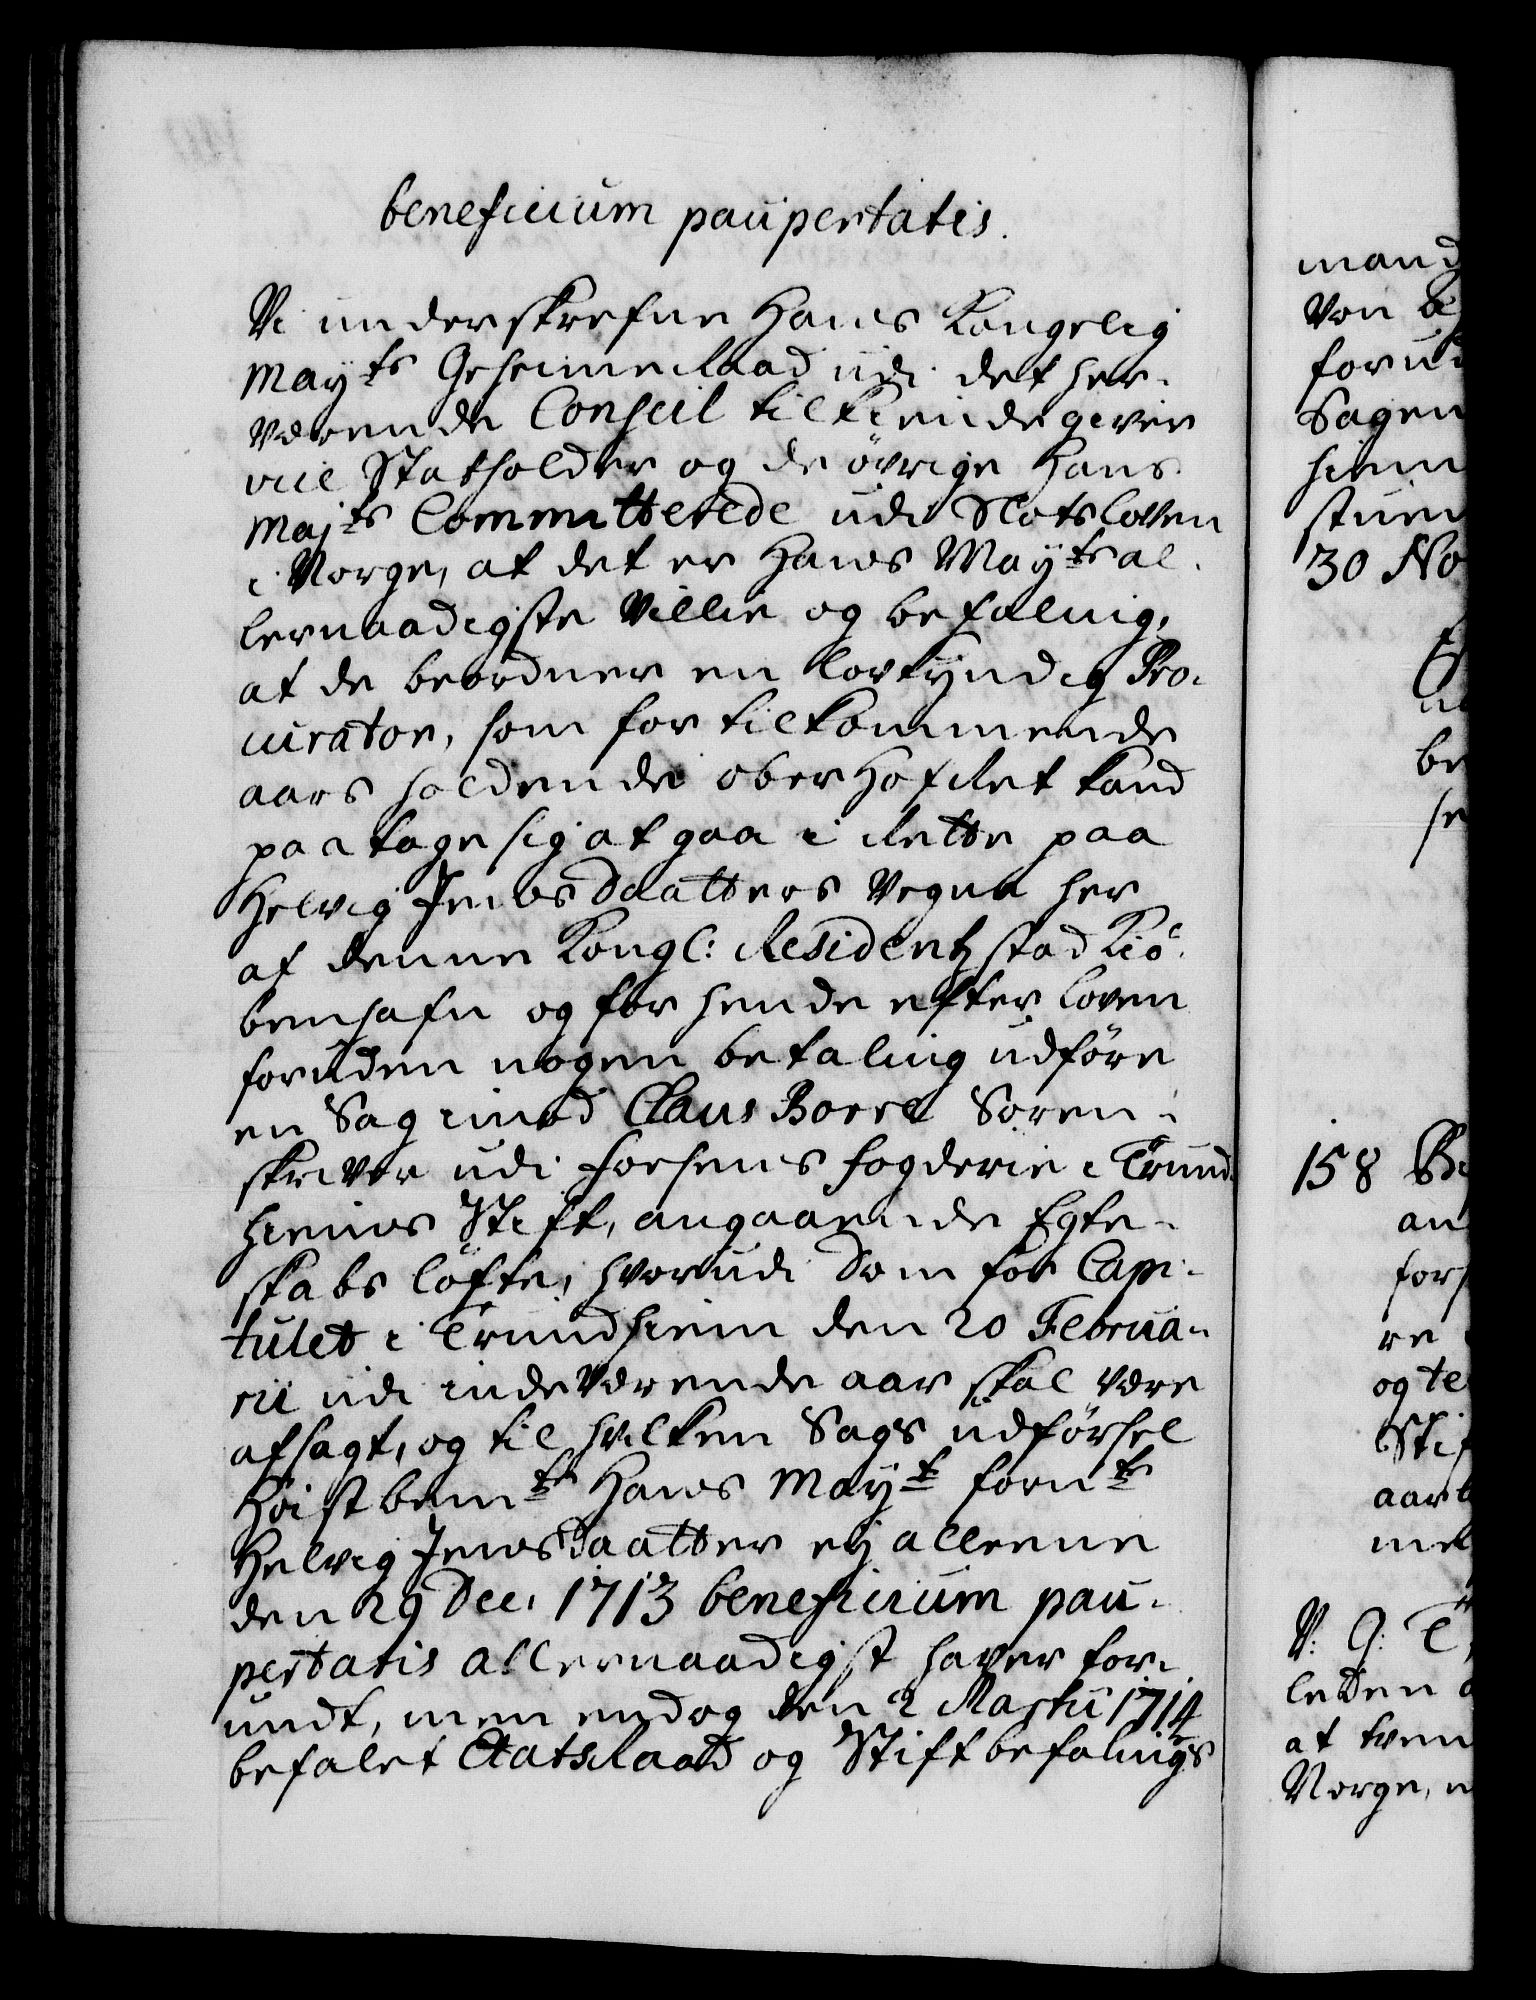 beneficium paupertatis.
Vi underskrefne Hans Kongelig
Mayts Geheimeraad udi det her-
værende Conseil tilkiendegiver
vice Statholder og de øvrige Hans
Majts Committerede udi Slotsloven
i Norge, at det er Hans Mayts al-
lernaadigste Villie og befalning,
at de beordner en lovkyndig Pro-
curator, som for tilkommende
aars holdende ober Hofret kand
paatage sig at gaa i Rette paa
Helvig Jensdaatters Vegne her
af denne Kongl: Residentz stad Kiö-
benhafn og for hende efter loven
foruden nogen betaling udføre
en Sag imod Claus Borre Soren-
skriver udi Foesens fogderie i Trund-
hiems Stift, angaaende Egte-
skabs löfte, hvorudi Dom for Capi-
tulet i Trundhiem den 20 Februa-
rii udi indeværende aar skal være
afsagt, og til hvilken Sags udførsel
Höistbemte Hans Mayt fornte
Helvig Jensdaatter ej alleene
den 29 Dec. 1713 beneficium pau-
pertatis allernaadigst haver for-
undt, men endog den 2 Martii 1714
befalet Etatsraad og Stiftbefalings
mand
Von
forud
Sagen
hiem
stuen
30 No
be
se
158
an
fors
re
og te
Stif
aar
V: G: T
leden
at tven
Norge,